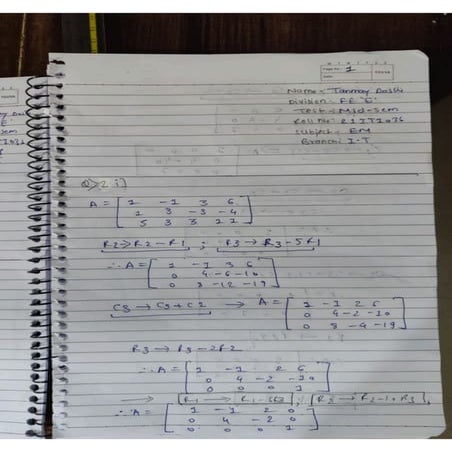 Page No.: 1
Date
Name:- Tanmay
Division:- FE E
Test:- Mid-Sem
Roll No: 21IT1036
Subject:- EM
Branch: I.T
Q>2. i]
A = [ 1 -1 3 6
1 3 -3 -4
5 3 3 11 ]
R2→R2-R1 ; R3→R3-5R1
∴ A = [ 1 -1 3 6
0 4 -6 -10
0 8 -12 -19 ]
C3 → C3+C2 → A = [ 1 -1 2 6
0 4 -2 -10
0 8 -4 -19 ]
R3 → R3-2R2
∴ A = [ 1 -1 2 6
0 4 -2 -10
0 0 0 1 ]
→ [R1 → R1-6R3] ; [R2 → R2-10R3],
∴ A = [ 1 -1 2 0
0 4 -2 0
0 0 0 1 ]